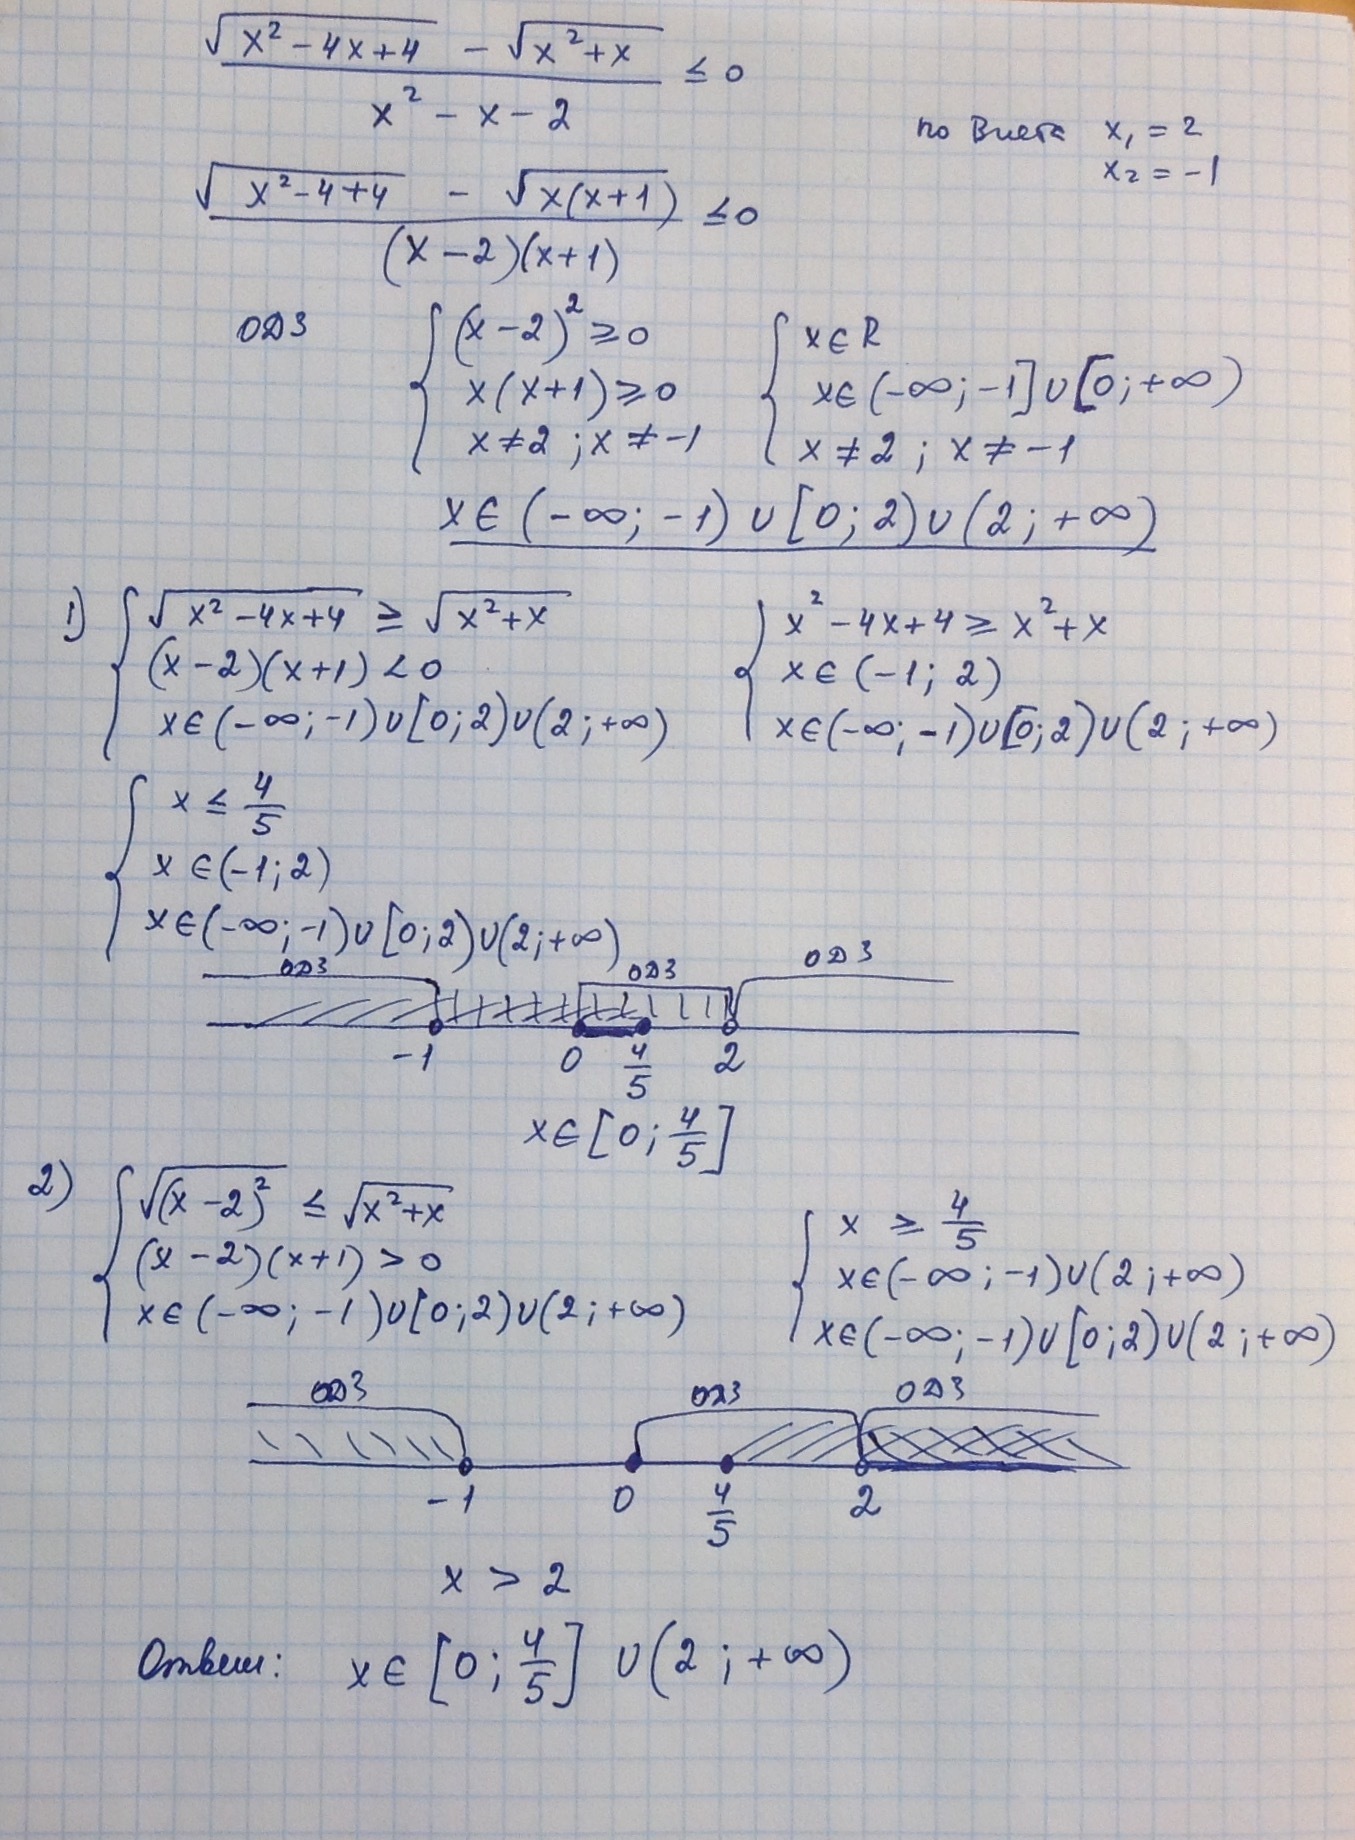 √(x² − 4x + 4) − √(x² + x) / x² − x − 2 ≤ 0
по Виета x₁ = 2
x₂ = −1
√(x² − 4 + 4) − √(x(x+1)) / (x − 2)(x + 1) ≤ 0
ОДЗ { (x − 2)² ≥ 0 { x ∈ R
x(x+1) ≥ 0 x ∈ (−∞; −1] ∪ [0; +∞)
x ≠ 2 ; x ≠ −1 x ≠ 2 ; x ≠ −1
x ∈ (−∞; −1) ∪ [0; 2) ∪ (2; +∞)
1) { √(x² − 4x + 4) ≥ √(x² + x) { x² − 4x + 4 ≥ x² + x
(x − 2)(x + 1) < 0 x ∈ (−1; 2)
x ∈ (−∞; −1) ∪ [0; 2) ∪ (2; +∞) x ∈ (−∞; −1) ∪ [0; 2) ∪ (2; +∞)
{ x ≤ 4/5
x ∈ (−1; 2)
x ∈ (−∞; −1) ∪ [0; 2) ∪ (2; +∞)
ОДЗ ОДЗ ОДЗ
−1 0 4/5 2
x ∈ [0; 4/5]
2) { √(x − 2)² ≤ √(x² + x) { x ≥ 4/5
(x − 2)(x + 1) > 0 x ∈ (−∞; −1) ∪ (2; +∞)
x ∈ (−∞; −1) ∪ [0; 2) ∪ (2; +∞) x ∈ (−∞; −1) ∪ [0; 2) ∪ (2; +∞)
ОДЗ ОДЗ ОДЗ
−1 0 4/5 2
x > 2
Ответ: x ∈ [0; 4/5] ∪ (2; +∞)